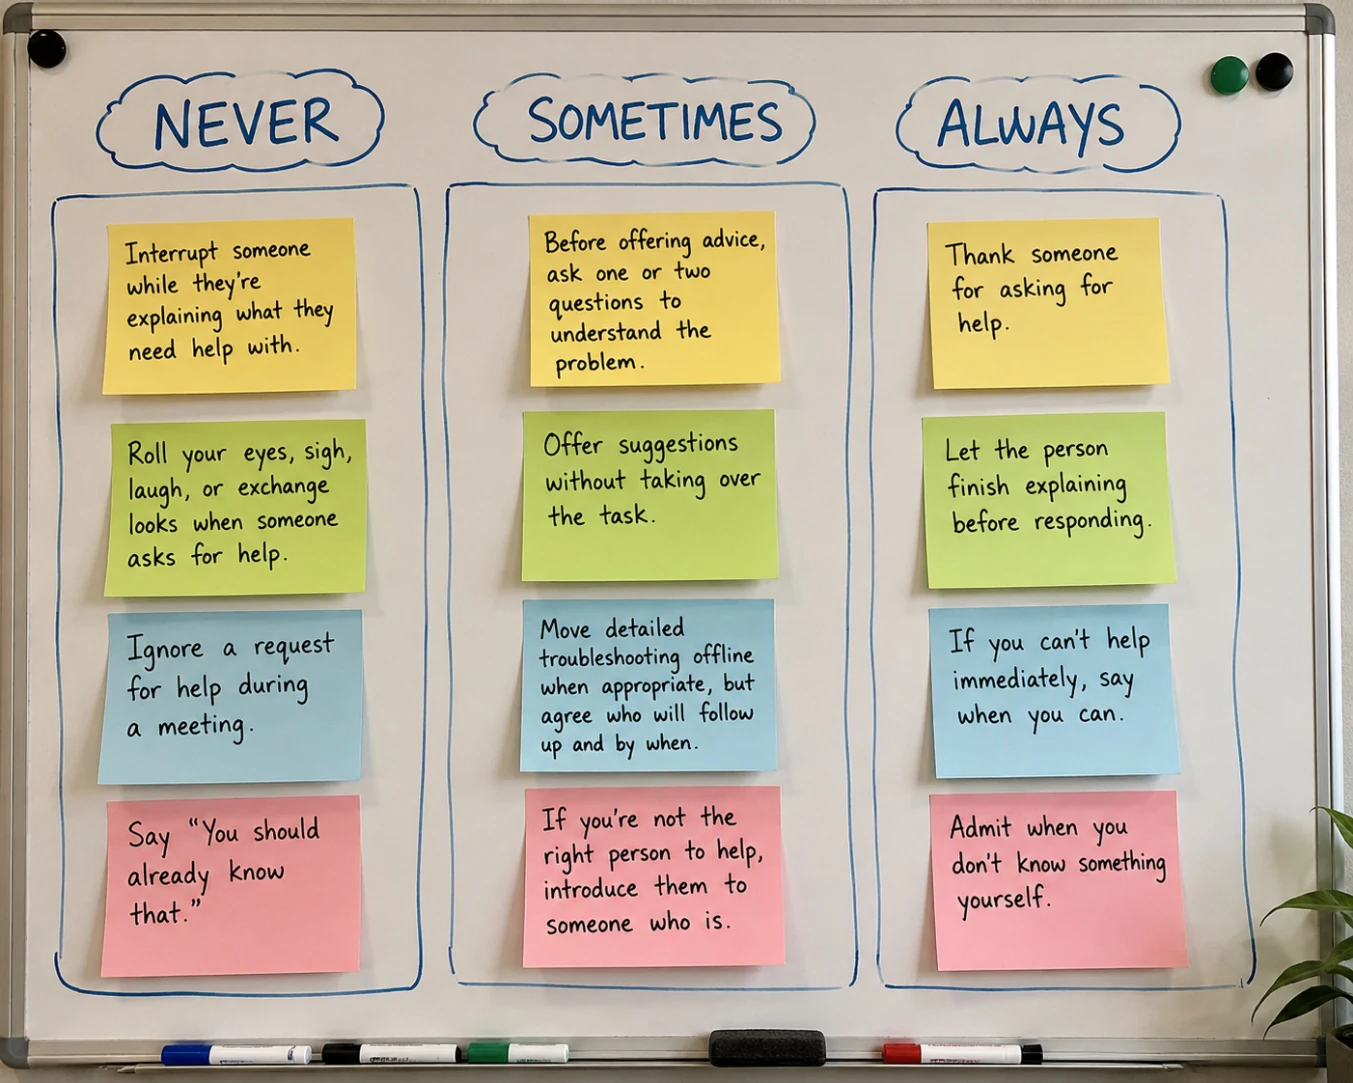 NEVER
Interrupt someone
while they're
explaining what they
need help with.
Roll your eyes, sigh,
laugh, or exchange
looks when someone
asks for help.
Ignore a request
for help during
a meeting.
Say “You should
already know
that.”
SOMETIMES
Before offering advice,
ask one or two
questions to
understand the
problem.
Offer suggestions
without taking over
the task.
Move detailed
troubleshooting offline
when appropriate, but
agree who will follow
up and by when.
If you're not the
right person to help,
introduce them to
someone who is.
ALWAYS
Thank someone
for asking for
help.
Let the person
finish explaining
before responding.
If you can't help
immediately, say
when you can.
Admit when you
don't know something
yourself.